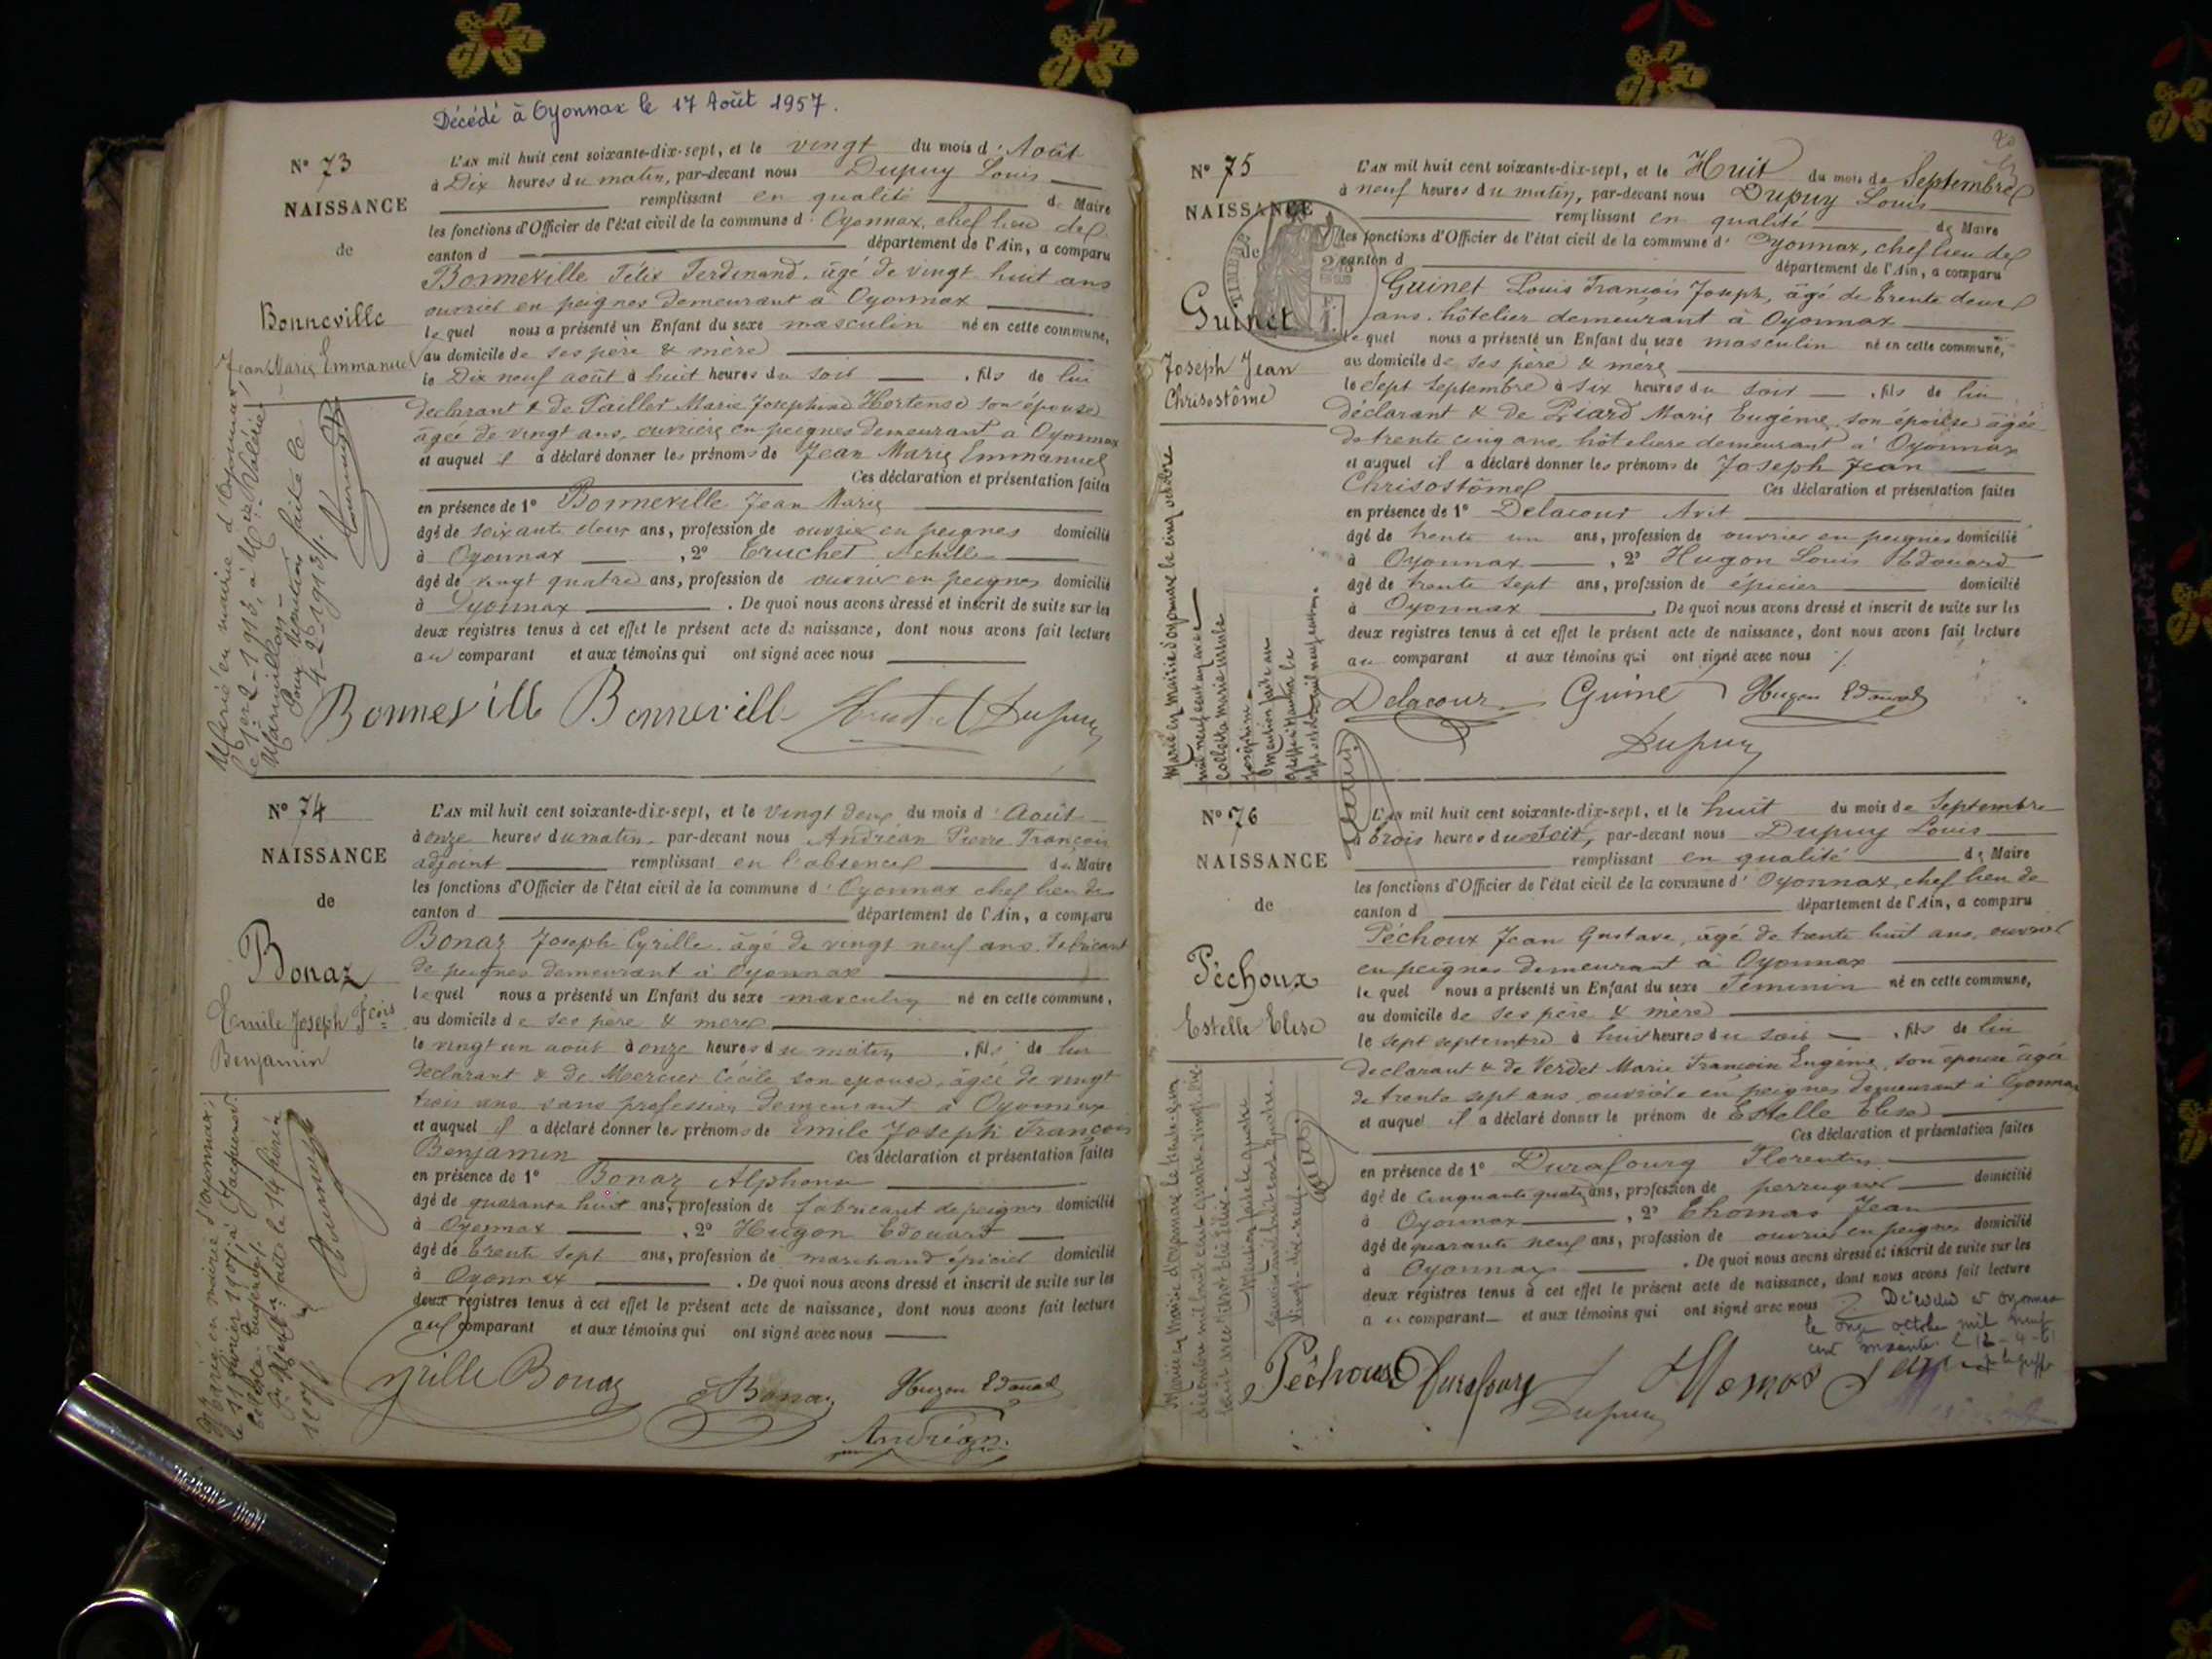 Décédé à Oyonnax le 17 Août 1957.
N° 73
NAISSANCE
de
Bonneville
Jean Marie Emmanuel
L'AN mil huit cent soixante-dix-sept, et le vingt du mois d'Août
à Dix heures du matin, par-devant nous Dupuy Louis
remplissant en qualité de Maire
les fonctions d'Officier de l'état civil de la commune d'Oyonnax, chef lieu de
canton d département de l'Ain, a comparu
Bonneville Félix Ferdinand, âgé de vingt huit ans
ouvrier en peignes demeurant à Oyonnax
lequel nous a présenté un Enfant du sexe masculin né en cette commune,
au domicile de ses père & mère
le Dix neuf août à huit heures du soir, fils de lui
déclarant & de Marie Josephine Hortense son épouse
âgée de vingt ans, ouvrière en peignes demeurant à Oyonnax
et auquel il a déclaré donner les prénoms de Jean Marie Emmanuel
Ces déclaration et présentation faites
en présence de 1° Bonneville Jean Marie
âgé de soixante deux ans, profession de ouvrier en peignes domicilié
à Oyonnax, 2° Truchet Achille
âgé de vingt quatre ans, profession de ouvrier en peignes domicilié
à Oyonnax. De quoi nous avons dressé et inscrit de suite sur les
deux registres tenus à cet effet le présent acte de naissance, dont nous avons fait lecture
au comparant et aux témoins qui ont signé avec nous
Marié en mairie d'Oyonnax,
Marmillon
Pour mention faite le
4-2-1913/.
Bonneville Bonneville Truchet Dupuy
N° 74
NAISSANCE
de
Bonaz
Emile Joseph Fçois
Benjamin
L'AN mil huit cent soixante-dix-sept, et le vingt deux du mois d'Août
à onze heures du matin, par-devant nous Andréan Pierre François
adjoint remplissant en l'absence du Maire
les fonctions d'Officier de l'état civil de la commune d'Oyonnax chef lieu de
canton d département de l'Ain, a comparu
Bonaz Joseph Cyrille, âgé de vingt neuf ans, fabricant
de peignes demeurant à Oyonnax
lequel nous a présenté un Enfant du sexe masculin né en cette commune,
au domicile de ses père & mère
le vingt un août à onze heures du matin, fils de lui
déclarant & de Mercier Cécile son épouse, âgée de vingt
trois ans sans profession demeurant à Oyonnax
et auquel il a déclaré donner les prénoms de Emile Joseph François
Benjamin Ces déclaration et présentation faites
en présence de 1° Bonaz Alphonse
âgé de quarante huit ans, profession de fabricant de peignes domicilié
à Oyonnax, 2° Hugon Edouard
âgé de trente sept ans, profession de marchand épicier domicilié
à Oyonnax. De quoi nous avons dressé et inscrit de suite sur les
deux registres tenus à cet effet le présent acte de naissance, dont nous avons fait lecture
au comparant et aux témoins qui ont signé avec nous
Marié en mairie d'Oyonnax,
le 11 février 1905, à
Cyrille Bonaz Bonaz Hugon Edouard
Andréan
N° 75
NAISSANCE
de
TIMBRE
Guinet
Joseph Jean
Chrisostôme
L'AN mil huit cent soixante-dix-sept, et le Huit du mois de Septembre
à neuf heures du matin, par-devant nous Dupuy Louis
remplissant en qualité de Maire
les fonctions d'Officier de l'état civil de la commune d'Oyonnax, chef lieu de
canton d département de l'Ain, a comparu
Guinet Louis François Joseph, âgé de trente deux
ans, hôtelier demeurant à Oyonnax
lequel nous a présenté un Enfant du sexe masculin né en cette commune,
au domicile de ses père & mère
le Sept Septembre à six heures du soir, fils de lui
déclarant & de Marie Eugénie, son épouse âgée
de trente cinq ans, hôtelière demeurant à Oyonnax
et auquel il a déclaré donner les prénoms de Joseph Jean
Chrisostôme Ces déclaration et présentation faites
en présence de 1° Delacour Avit
âgé de trente un ans, profession de ouvrier en peignes domicilié
à Oyonnax, 2° Hugon Louis Edouard
âgé de trente sept ans, profession de épicier domicilié
à Oyonnax. De quoi nous avons dressé et inscrit de suite sur les
deux registres tenus à cet effet le présent acte de naissance, dont nous avons fait lecture
au comparant et aux témoins qui ont signé avec nous
Marié en mairie d'Oyonnax le cinq octobre
Delacour Guinet Hugon Edouard
Dupuy
N° 76
NAISSANCE
de
Péchoux
Estelle Elise
L'AN mil huit cent soixante-dix-sept, et le huit du mois de Septembre
à trois heures du soir, par-devant nous Dupuy Louis
remplissant en qualité de Maire
les fonctions d'Officier de l'état civil de la commune d'Oyonnax, chef lieu de
canton d département de l'Ain, a comparu
Péchoux Jean Gustave, âgé de trente huit ans, ouvrier
en peignes demeurant à Oyonnax
lequel nous a présenté un Enfant du sexe Féminin né en cette commune,
au domicile de ses père & mère
le sept septembre à huit heures du soir, fils de lui
déclarant & de Verdet Marie Eugénie, son épouse âgée
de trente sept ans, ouvrière en peignes demeurant à Oyonnax
et auquel il a déclaré donner le prénom de Estelle Elise
Ces déclaration et présentation faites
en présence de 1° Durafourg Florentin
âgé de cinquante quatre ans, profession de perruquier domicilié
à Oyonnax, 2° Thomas Jean
âgé de quarante neuf ans, profession de ouvrier en peignes domicilié
à Oyonnax. De quoi nous avons dressé et inscrit de suite sur les
deux registres tenus à cet effet le présent acte de naissance, dont nous avons fait lecture
au comparant et aux témoins qui ont signé avec nous
Décédée à Oyonnax
le onze octobre mil neuf
cent
Péchoux Durafourg Thomas Jean
Dupuy